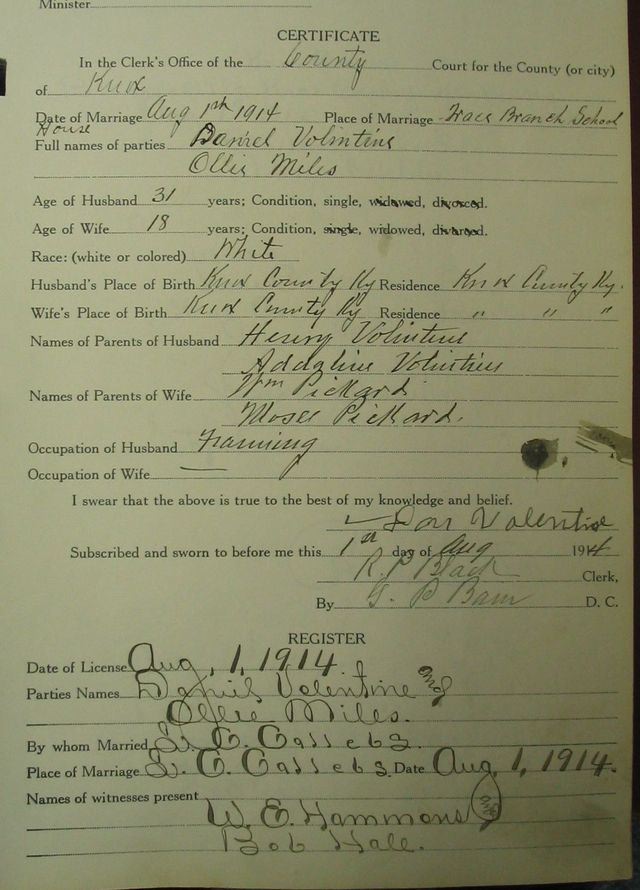 Minister
CERTIFICATE
In the Clerk's Office of the County Court for the County (or city)
of Knox
Date of Marriage Aug 1st 1914 Place of Marriage Trace Branch School
House
Full names of parties Daniel Volintine
Ollie Miles
Age of Husband 31 years; Condition, single, widowed, divorced.
Age of Wife 18 years; Condition, single, widowed, divorced.
Race: (white or colored) White
Husband's Place of Birth Knox County Ky Residence Knox County Ky.
Wife's Place of Birth Knox County Ky Residence " " "
Names of Parents of Husband Henry Volintine
Addaline Volintine
Names of Parents of Wife Wm Pickard
Pickard.
Occupation of Husband Farming
Occupation of Wife —
I swear that the above is true to the best of my knowledge and belief.
Dan Valentine
Subscribed and sworn to before me this 1st day of Aug 1914
R. P Black Clerk,
By G. P Bain D. C.
REGISTER
Date of License Aug, 1, 1914.
Parties Names Daniel Valentine and
Ollie Miles.
By whom Married
Place of Marriage Date Aug, 1, 1914.
Names of witnesses present
W. E. Hammons and
Bob Hale.